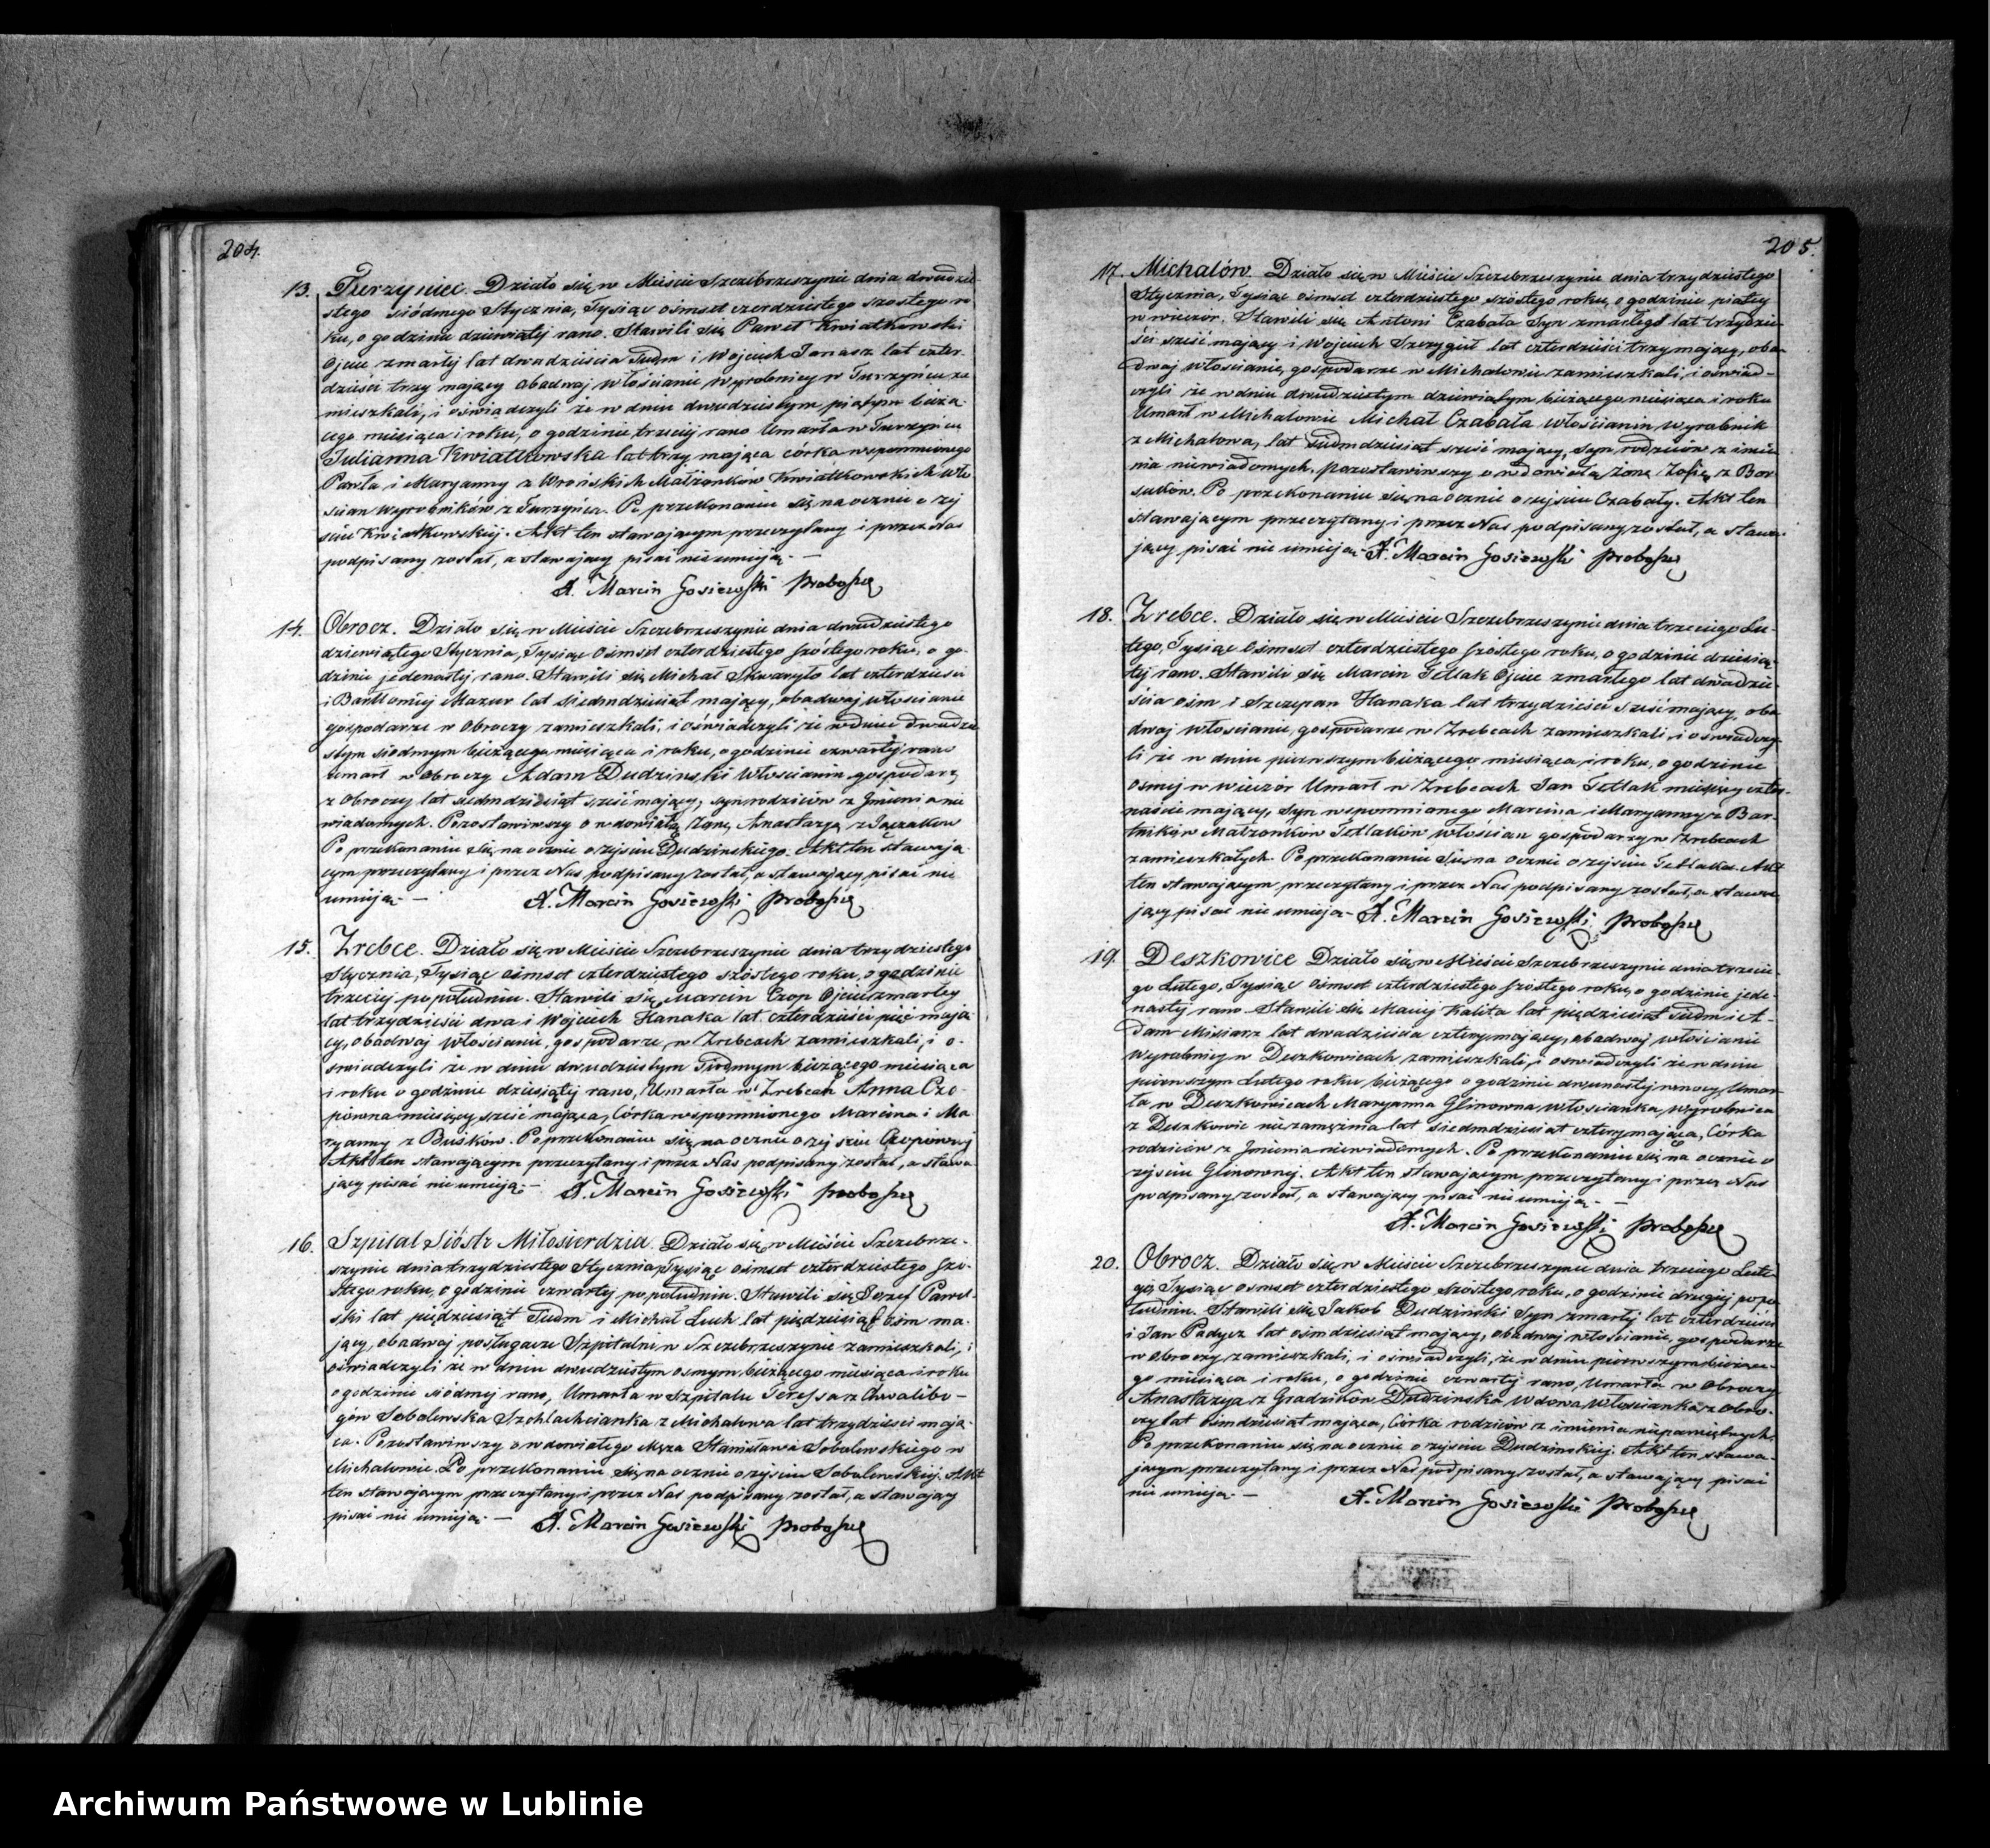 204.
13. Turzyniec. Działo się w Mieście Szczebrzeszynie dnia dwudzie-
stego siódmego Stycznia, Tysiąc ośmset czterdziestego szostego ro
ku, o godzinie dziewiątej rano. Stawili się Paweł Kwiatkowski
Ojciec zmarłej lat dwadzieścia siedm i Wojciech Janasz lat czter-
dzieści trzy mający obadwaj włościanie wyrobnicy w Turzyńcu za
mieszkali, i oświadczyli że w dniu dwudziestym piątym bieżą-
cego miesiąca i roku, o godzinie trzeciej rano Umarła w Turzyńcu
Julianna Kwiatkowska lat trzy mająca córka wspomnionego
Pawła i Maryanny z Wrońskich Małżonków Kwiatkowskich Wło
ścian wyrobników z Turzyńca. Po przekonaniu się na ocznie o zej
ściu Kwiatkowskiej. Akt ten stawającym przeczytany i przez Nas
podpisany został, a stawający pisać nie umieją. —
X. Marcin Gosiewski Proboszcz
14. Obrocz. Działo się w Mieście Szczebrzeszynie dnia dwudziestego
dziewiątego Stycznia, Tysiąc ośmset czterdziestego szóstego roku, o go-
dzinie jedenastej rano. Stawili się Michał Skwaryło lat czterdzieści
i Bartłomiej Mazur lat siedmdziesiąt mający, obadwaj włościanie
gospodarze w Obroczy zamieszkali, i oświadczyli że w dniu dwudzie
stym siodmym bieżącego miesiąca i roku, o godzinie czwartej rano
umarł w Obroczy Adam Dudzinski Włościanin gospodarz
z Obroczy lat siedmdziesiąt sześć mający, syn rodziców z Imienia nie
wiadomych. Pozostawiwszy owdowiałą Żonę Anastazją z
Po przekonaniu się na ocznie o zejściu Dudzinskiego. Akt ten stawają-
cym przeczytany i przez Nas podpisany został, a stawający pisać nie
umieją. — X. Marcin Gosiewski Proboszcz
15. Zrebce. Działo się w Mieście Szczebrzeszynie dnia trzydziestego
Stycznia, Tysiąc ośmset czterdziestego szóstego roku, o godzinie
trzeciej po południu. Stawili się Marcin Czop Ojciec zmarłey
lat trzydzieści dwa i Wojciech Hanaka lat czterdzieści pięć mają
cy, obadwaj włościanie, gospodarze, w Zrebcach zamieszkali, i o-
świadczyli że w dniu dwudziestym siódmym bieżącego miesiąca
i roku o godzinie dziesiątej rano, Umarła w Zrebcach Anna Czo-
pówna miesięcy sześć mająca, Córka wspomnionego Marcina i Ma
ryanny z Buśków. Po przekonaniu się na ocznie o zejściu Czopównej
Akt ten stawającym przeczytany i przez Nas podpisany został, a stawa
jący pisać nie umieją. — X. Marcin Gosiewski proboszcz
16. Szpital Sióstr Miłosierdzia. Działo się w Mieście Szczebrze-
szynie dnia trzydziestego Stycznia Tysiąc ośmset czterdziestego szó-
stego roku, o godzinie czwartej po południu. Stawili się Józef Pawel-
ski lat pięćdziesiąt siedm i Michał Łuch lat pięćdziesiąt ośm ma-
jący, obadwaj posługacze Szpitalni w Szczebrzeszynie zamieszkali, i
oświadczyli że w dniu dwudziestym osmym bieżącego miesiąca i roku
o godzinie siódmej rano, Umarła w Szpitalu Teressa z Chwalibo-
gów Sobolewska Szchlachcianka z Michalowa lat trzydzieści mają-
ca. Pozostawiwszy owdowiałego Męża Stanisława Sobolewskiego w
Michalowie. Po przekonaniu się na ocznie o zejściu Sobolewskiej. Akt
ten stawającym przeczytany i przez Nas podpisany został, a stawający
pisać nie umieją. — X. Marcin Gosiewski Proboszcz
205.
17. Michalów. Działo się w Mieście Szczebrzeszynie dnia trzydziestego
Stycznia, Tysiąc ośmset czterdziestego szóstego roku, o godzinie piątej
w wieczor. Stawili się Antoni Czabała Syn zmarłego lat trzydzie-
ści sześć mający i Wojciech Szczygieł lat czterdzieści trzy mający, oba-
dwaj włościanie, gospodarze w Michalowie zamieszkali, i oświad-
czyli że w dniu dwudziestym dziewiątym bieżącego miesiąca i roku
Umarł w Michalowie Michał Czabała włościanin wyrobnik
z Michalowa, lat siedmdziesiąt sześć mający, Syn rodziców z imie-
nia niewiadomych. pozostawiwszy owdowiałą żonę Zofię z Bor
suków. Po przekonaniu się na ocznie o zejściu Czabały. Akt ten
stawającym przeczytany i przez Nas podpisany został, a stawa-
jący pisać nie umieją. X. Marcin Gosiewski proboszcz
18. Zrebce. Działo się w Mieście Szczebrzeszynie dnia trzeciego Lu-
tego, Tysiąc ośmset czterdziestego szóstego roku, o godzinie dziesią-
tej rano. Stawili się Marcin Tetlak Ojciec zmarłego lat dwadzie-
ścia ośm i Szczepan Hanaka lat trzydzieści sześć mający, oba
dwaj włościanie, gospodarze w Zrebcach zamieszkali, i oświadczy-
li że w dniu pierwszym bieżącego miesiąca i roku, o godzinie
ósmej w wieczór Umarł w Zrebcach Jan Tetlak miesięcy czter-
naście mający, Syn wspomnionego Marcina i Maryanny z Bar-
tników Małżonków Tetlaków włościan gospodarzy w Zrebcach
zamieszkałych. Po przekonaniu się na ocznie o zejściu Tetlaka. Akt
ten stawającym przeczytany i przez Nas podpisany został, a stawa
jący pisać nie umieją. X. Marcin Gosiewski, proboszcz
19. Deszkowice Działo się w Mieście Szczebrzeszynie dnia trzecie-
go Lutego, Tysiąc ośmset czterdziestego szóstego roku, o godzinie jede-
nastej rano. Stawili się Maciej Kalita lat pięćdziesiąt siedm i A-
dam Misiarz lat dwadzieścia cztery mający, obadwaj włościanie
Wyrobnicy w Deszkowicach zamieszkali, i oświadczyli że w dniu
pierwszym Lutego roku bieżącego o godzinie dwunastej w nocy, Umar-
ła w Deszkowicach Maryanna Glinowna, włościanka, wyrobnica
z Deszkowic niezamężna lat siedmdziesiąt cztery mająca, Córka
rodziców z Imienia niewiadomych. Po przekonaniu się na ocznie o
zejściu Glinownej. Akt ten stawającym przeczytany i przez Nas
podpisany został, a stawający pisać nie umieją. —
X. Marcin Gosiewski proboszcz
20. Obrocz. Działo się w Mieście Szczebrzeszynie dnia trzeciego Lute-
go, Tysiąc ośmset czterdziestego szóstego roku, o godzinie drugiej po po-
łudniu. Stawili się Jakób Dudziński Syn zmarłej lat czterdzieści
i Jan Padycz lat ośmdziesiąt mający, obadwaj włościanie, gospodarze
w Obroczy zamieszkali, i oświadczyli, że w dniu pierwszym bieżące-
go miesiąca i roku, o godzinie czwartej rano, Umarła w Obroczy
Anastazya z Gradzików Dudzinska Wdowa, Włościanka z Obro-
czy lat ośmdziesiąt mająca, Córka rodziców z imienia niepamiętnych.
Po przekonaniu się na ocznie o zejściu Dudzinskiej. Akt ten stawa-
jącym przeczytany i przez Nas podpisany został, a stawający pisać
nie umieją. — X. Marcin Gosiewski Proboszcz
Archiwum Państwowe w Lublinie